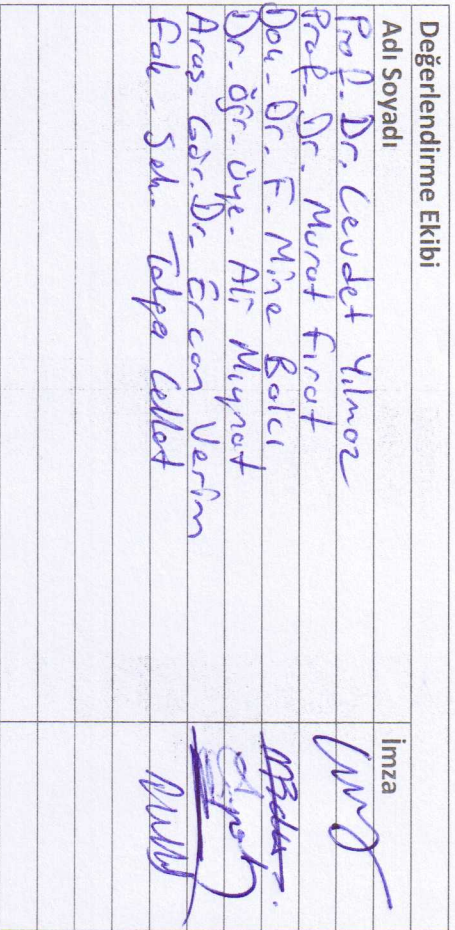 Değerlendirme Ekibi
Adı Soyadı İmza
Prof. Dr. Cevdet Yılmaz
Prof. Dr. Murat Fırat
Doç. Dr. F. Mine Balcı
Dr. Öğr. Üye. Ali Mıynat
Araş. Gör. Dr. Ercan Verim
Fak. Sek. Tolga Cellat